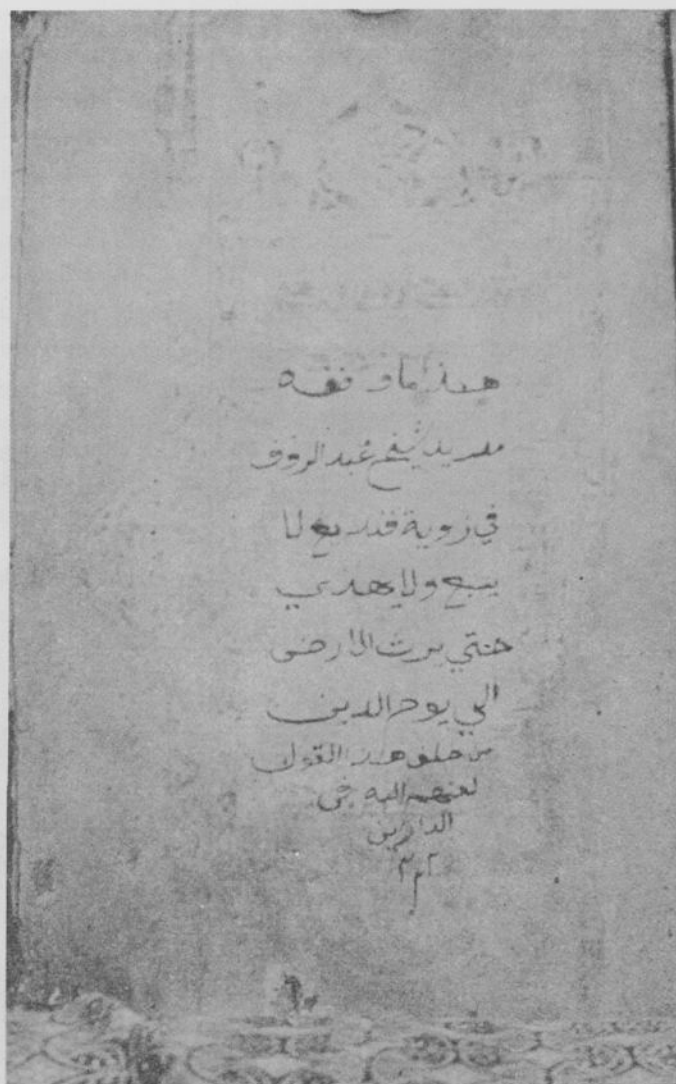 هذا ما وقفه
مريد شيخ عبد الروف
في زوية قنديج لا
يبع ولا يهدي
حتي يرث الارض
الي يوم الدين
من خلف هذا القول
لعنهم الله في
الدارين